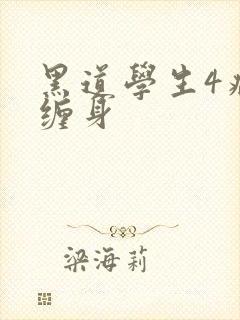 黑道學生4
缠身
梁海莉